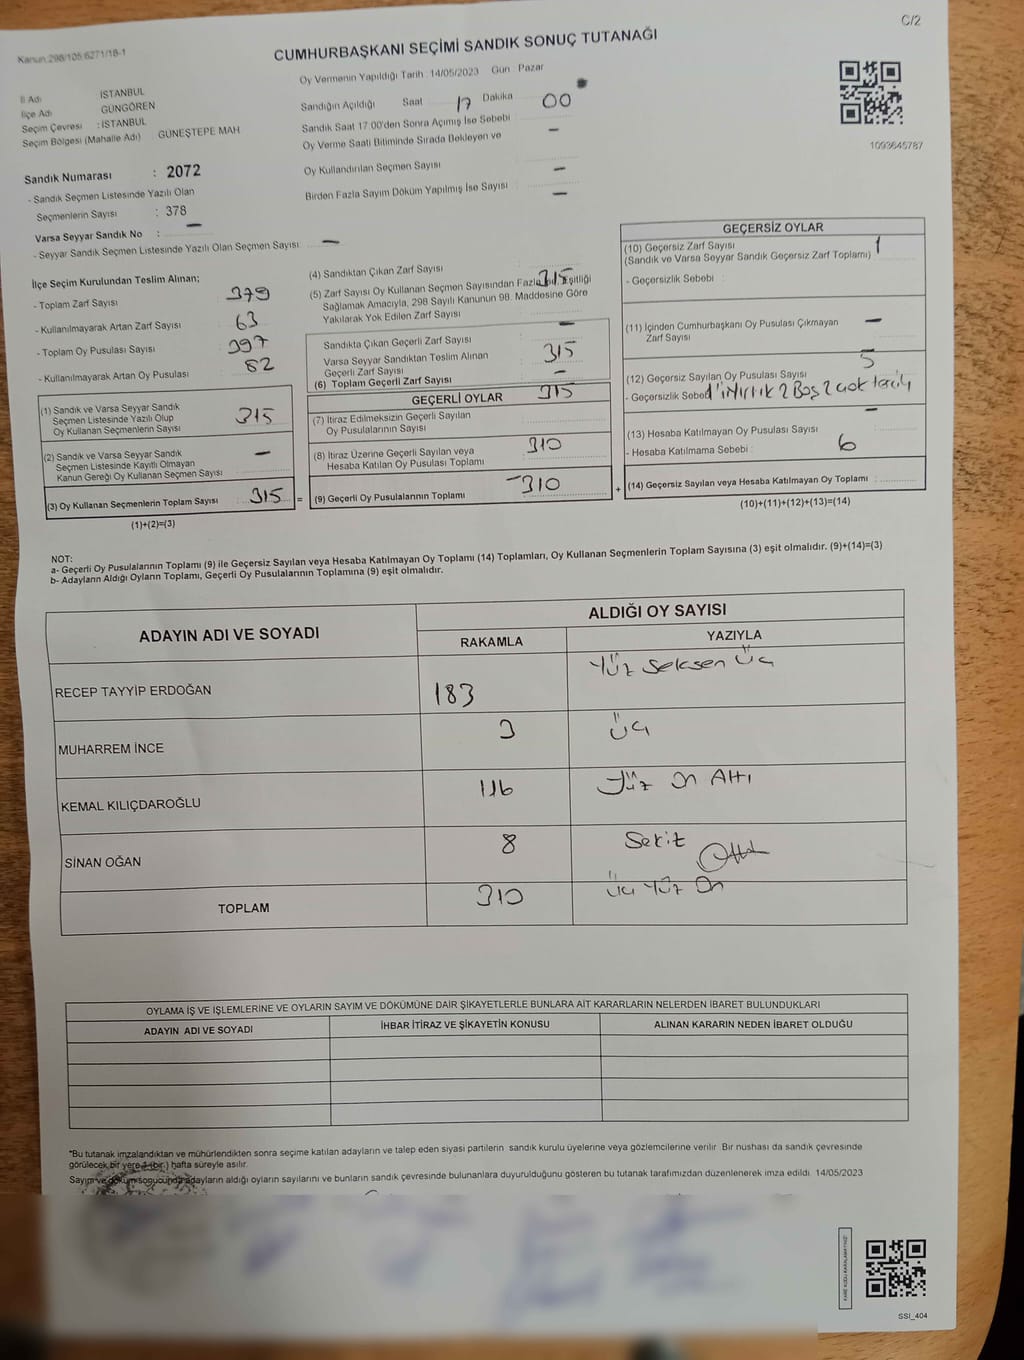 C/2
Kanun 298/105 6271/18-1
CUMHURBAŞKANI SEÇİMİ SANDIK SONUÇ TUTANAĞI
Oy Vermenin Yapıldığı Tarih : 14/05/2023 Gün : Pazar
İl Adı İSTANBUL
İlçe Adı GÜNGÖREN
Seçim Çevresi : İSTANBUL
Seçim Bölgesi (Mahalle Adı) GÜNEŞTEPE MAH
Sandığın Açıldığı Saat 17 Dakika 00
Sandık Saat 17:00'den Sonra Açılmış İse Sebebi
Oy Verme Saati Bitiminde Sırada Bekleyen ve –
Oy Kullandırılan Seçmen Sayısı –
Birden Fazla Sayım Döküm Yapılmış İse Sayısı –
1093645787
Sandık Numarası : 2072
- Sandık Seçmen Listesinde Yazılı Olan
Seçmenlerin Sayısı : 378
Varsa Seyyar Sandık No : –
- Seyyar Sandık Seçmen Listesinde Yazılı Olan Seçmen Sayısı –
İlçe Seçim Kurulundan Teslim Alınan;
- Toplam Zarf Sayısı 379
- Kullanılmayarak Artan Zarf Sayısı 63
- Toplam Oy Pusulası Sayısı 397
- Kullanılmayarak Artan Oy Pusulası 82
(1) Sandık ve Varsa Seyyar Sandık
Seçmen Listesinde Yazılı Olup
Oy Kullanan Seçmenlerin Sayısı 315
(2) Sandık ve Varsa Seyyar Sandık
Seçmen Listesinde Kayıtlı Olmayan
Kanun Gereği Oy Kullanan Seçmen Sayısı –
(3) Oy Kullanan Seçmenlerin Toplam Sayısı 315 =
(1)+(2)=(3)
(4) Sandıktan Çıkan Zarf Sayısı 315
(5) Zarf Sayısı Oy Kullanan Seçmen Sayısından Fazla İse, Eşitliği
Sağlamak Amacıyla, 298 Sayılı Kanunun 98. Maddesine Göre
Yakılarak Yok Edilen Zarf Sayısı –
Sandıkta Çıkan Geçerli Zarf Sayısı 315
Varsa Seyyar Sandıktan Teslim Alınan
Geçerli Zarf Sayısı –
(6) Toplam Geçerli Zarf Sayısı 315
GEÇERLİ OYLAR
(7) İtiraz Edilmeksizin Geçerli Sayılan
Oy Pusulalarının Sayısı 310
(8) İtiraz Üzerine Geçerli Sayılan veya
Hesaba Katılan Oy Pusulası Toplamı –
(9) Geçerli Oy Pusulalarının Toplamı 310 +
GEÇERSİZ OYLAR
(10) Geçersiz Zarf Sayısı 1
(Sandık ve Varsa Seyyar Sandık Geçersiz Zarf Toplamı)
- Geçersizlik Sebebi :
(11) İçinden Cumhurbaşkanı Oy Pusulası Çıkmayan –
Zarf Sayısı
(12) Geçersiz Sayılan Oy Pusulası Sayısı 5
- Geçersizlik Sebebi 2 Boş 2 çok tercih
(13) Hesaba Katılmayan Oy Pusulası Sayısı –
- Hesaba Katılmama Sebebi :
(14) Geçersiz Sayılan veya Hesaba Katılmayan Oy Toplamı 6
(10)+(11)+(12)+(13)=(14)
NOT:
a- Geçerli Oy Pusulalarının Toplamı (9) ile Geçersiz Sayılan veya Hesaba Katılmayan Oy Toplamı (14) Toplamları, Oy Kullanan Seçmenlerin Toplam Sayısına (3) eşit olmalıdır. (9)+(14)=(3)
b- Adayların Aldığı Oyların Toplamı, Geçerli Oy Pusulalarının Toplamına (9) eşit olmalıdır.
ADAYIN ADI VE SOYADI ALDIĞI OY SAYISI
RAKAMLA YAZIYLA
RECEP TAYYİP ERDOĞAN 183 Yüz Seksen Üç
MUHARREM İNCE 3 Üç
KEMAL KILIÇDAROĞLU 116 Yüz On Altı
SİNAN OĞAN 8 Sekiz
TOPLAM 310 Üç Yüz On
OYLAMA İŞ VE İŞLEMLERİNE VE OYLARIN SAYIM VE DÖKÜMÜNE DAİR ŞİKAYETLERLE BUNLARA AİT KARARLARIN NELERDEN İBARET BULUNDUKLARI
ADAYIN ADI VE SOYADI İHBAR İTİRAZ VE ŞİKAYETİN KONUSU ALINAN KARARIN NEDEN İBARET OLDUĞU
*Bu tutanak imzalandıktan ve mühürlendikten sonra seçime katılan adayların ve talep eden siyasi partilerin sandık kurulu üyelerine veya gözlemcilerine verilir Bir nushası da sandık çevresinde
görülecek bir yere 1 (bir) hafta süreyle asılır.
Sayım ve döküm sonucunda adayların aldığı oyların sayılarını ve bunların sandık çevresinde bulunanlara duyurulduğunu gösteren bu tutanak tarafımızdan düzenlenerek imza edildi 14/05/2023
SSI_404